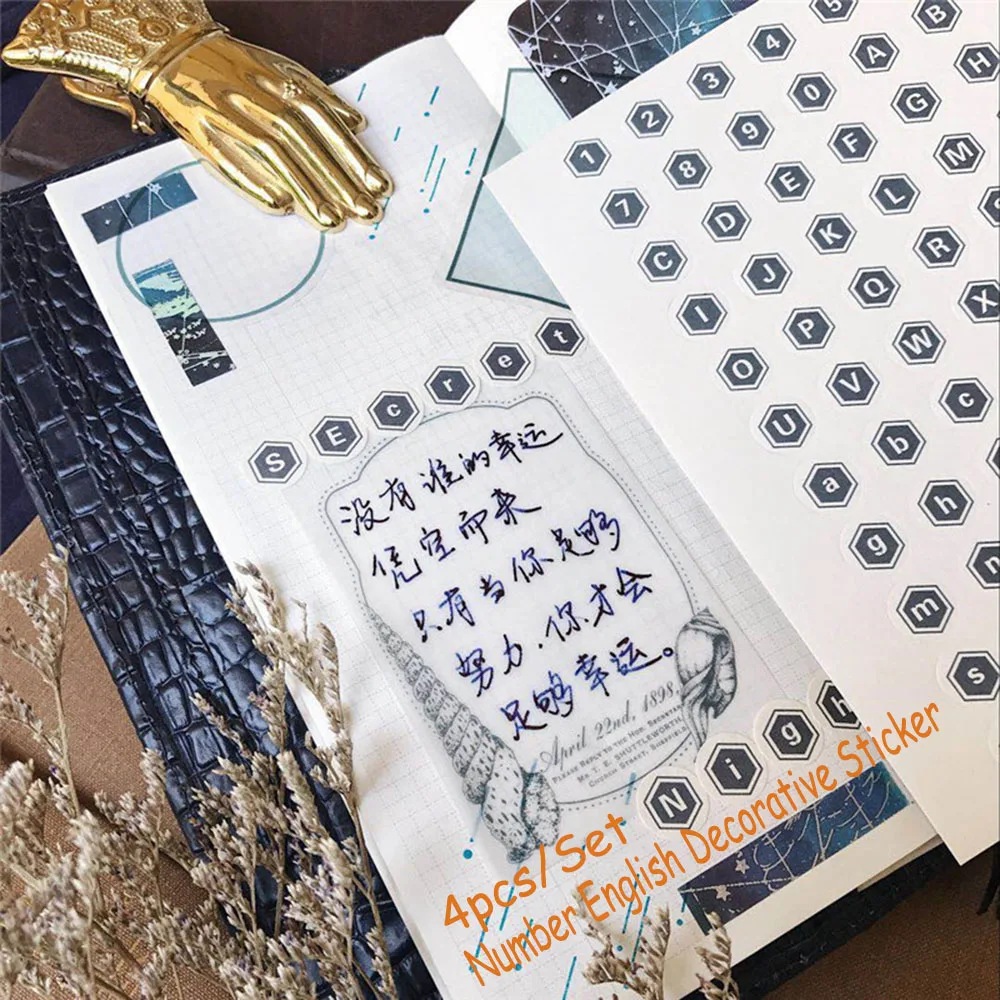 1 2 3 4 5
7 8 9 0 A B
C D E F G H
I J K L M
O P Q R
U V W X
a b c
g h
m n
s
SEcret
没有谁的幸运
凭空而来
只有当你足够
努力，你才会
足够幸运。
April 22nd, 1898.
Please Reply to the Hon. Secretary
Mr. T. E. Shuttleworth,
Church Street, Sheffield
Nigh
4pcs/Set
Number English Decorative Sticker